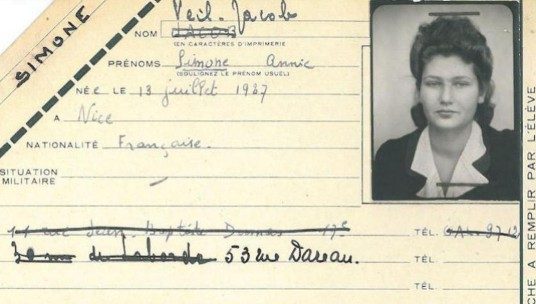 SIMONE
Veil-Jacob
NOM
(EN CARACTÈRES D'IMPRIMERIE
PRÉNOMS Simone Annie
(SOULIGNEZ LE PRÉNOM USUEL)
NÉE LE 13 juillet 1927
A Nice
NATIONALITÉ Française.
SITUATION
MILITAIRE
11 rue Jean-Baptiste Dumas 17e TÉL.
53 rue Dareau. TÉL.
TÉL.
CHE A REMPLIR PAR L'ÉLÈVE